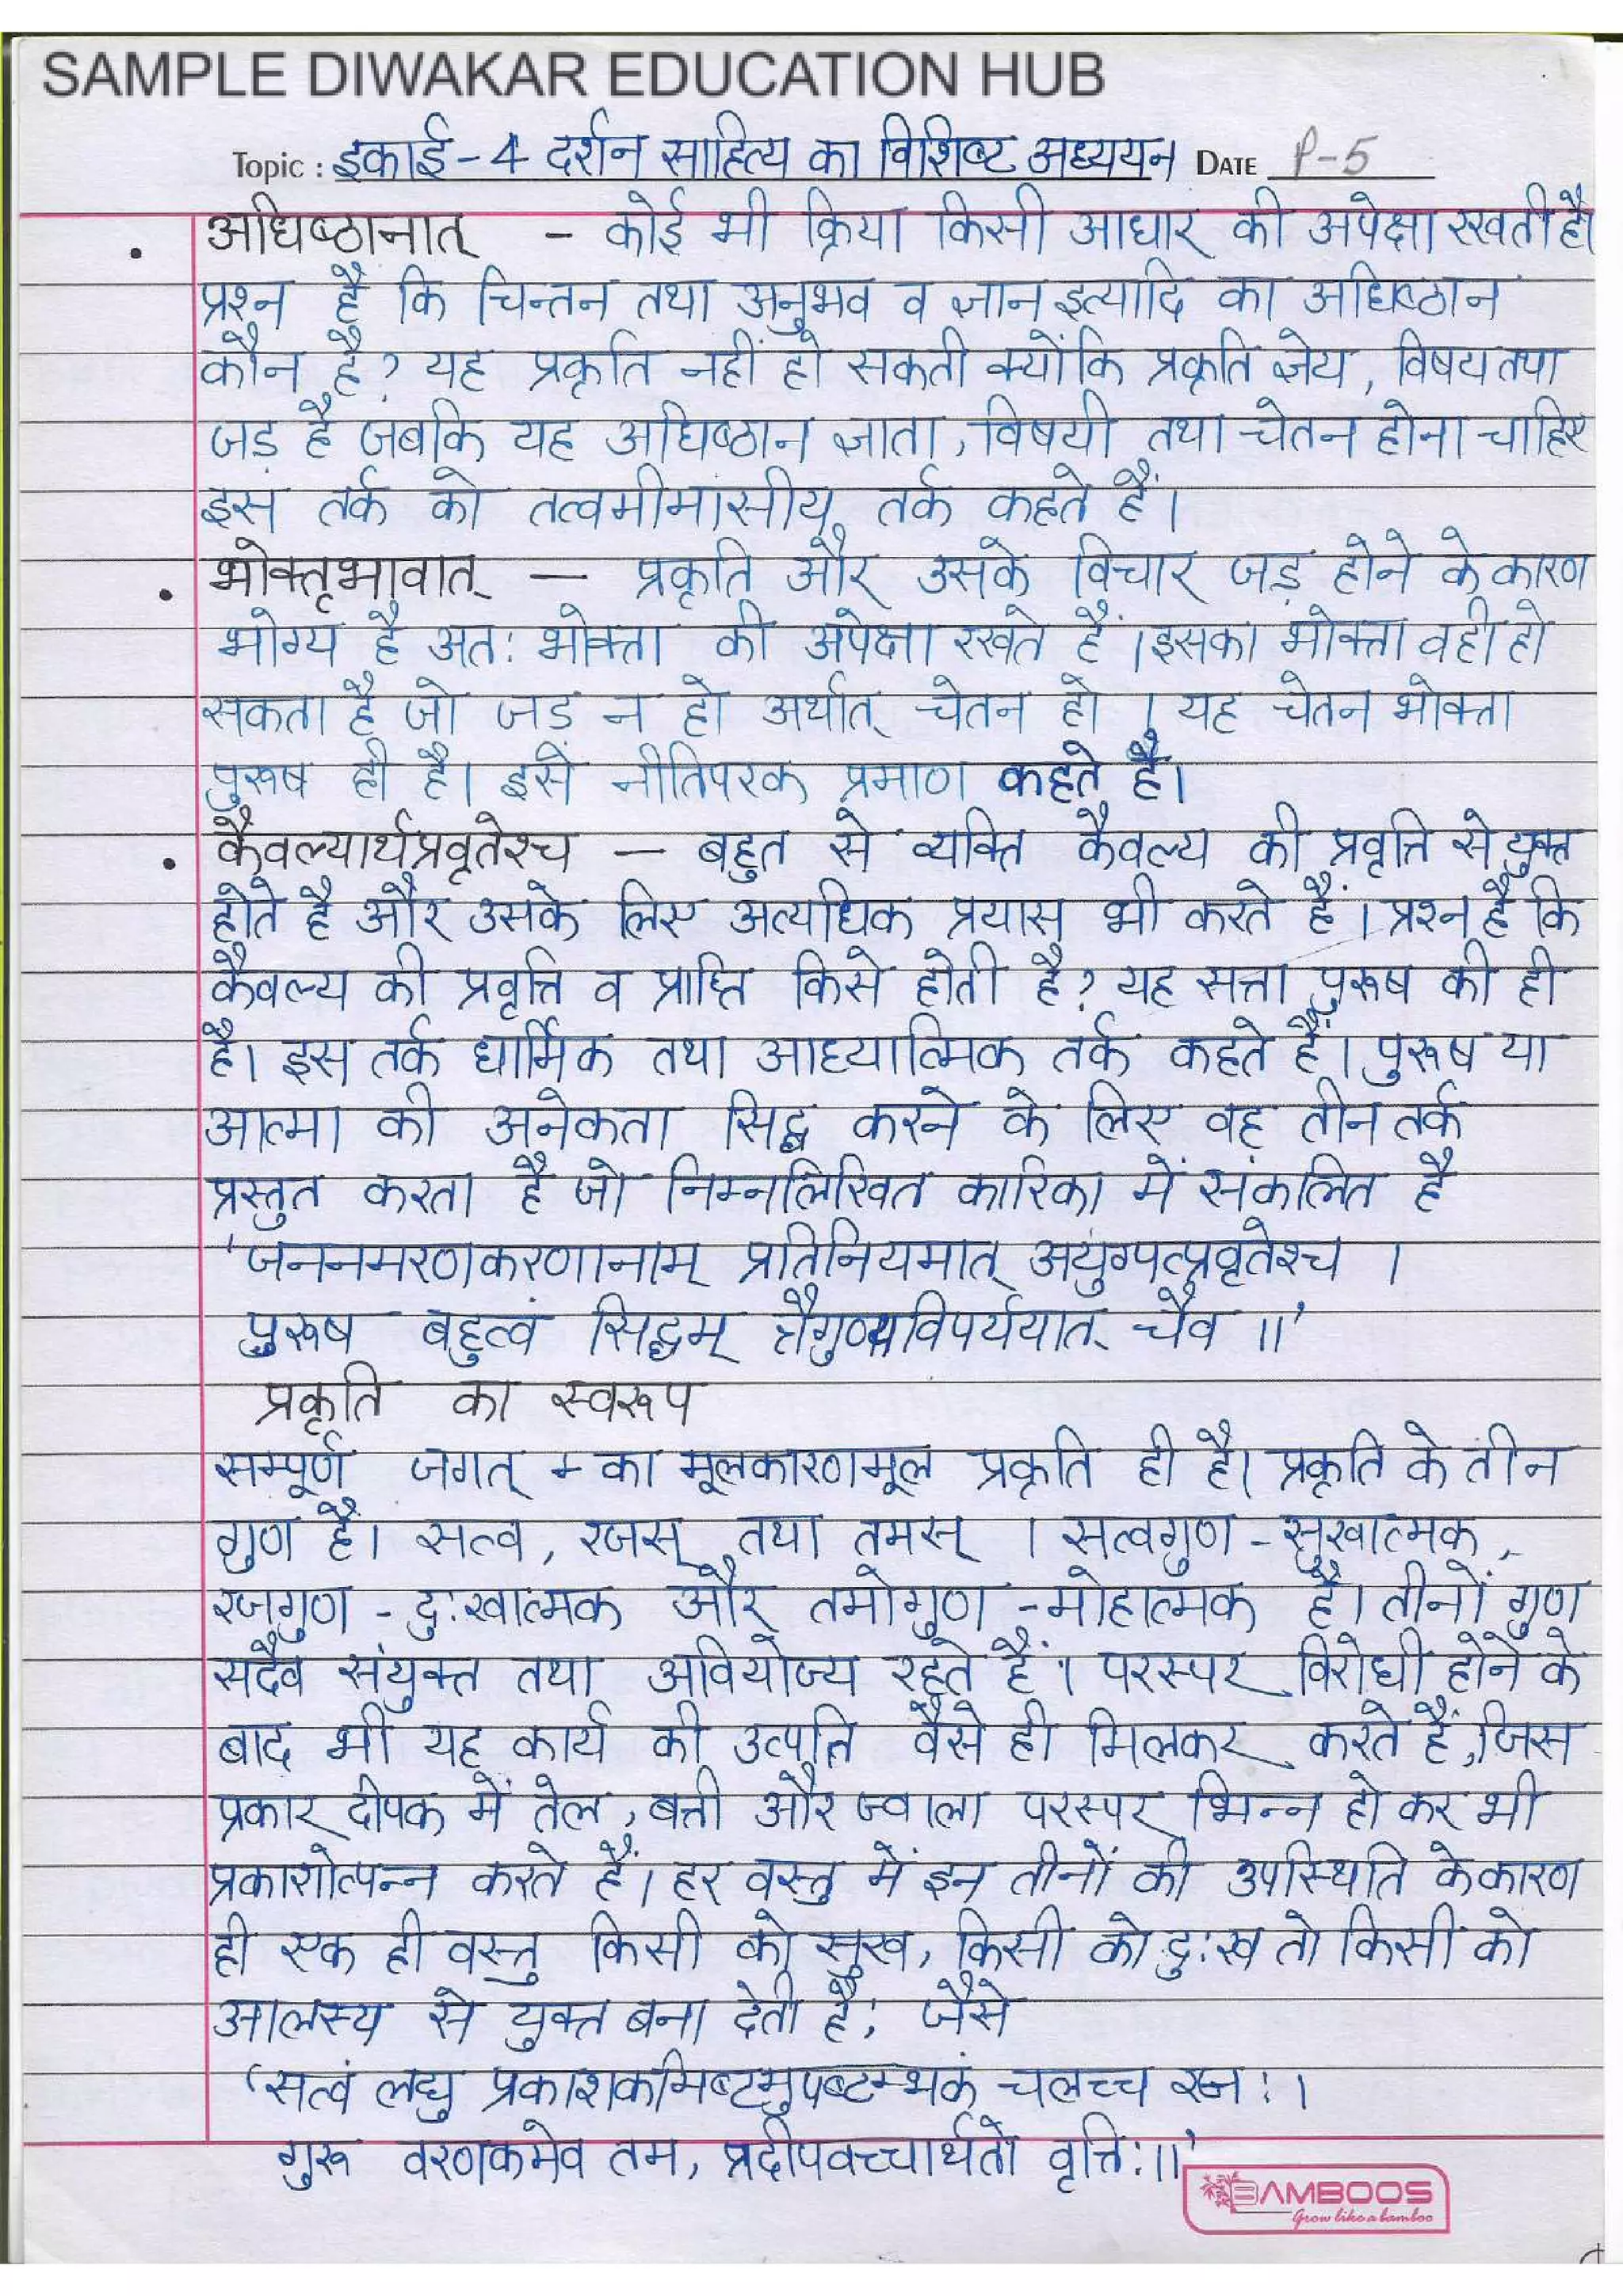 SAMPLE DIWAKAR EDUCATION HUB
Topic : इकाई - 4 दर्शन साहित्य का विशिष्ट अध्ययन DATE P-5
• अधिष्ठानात् - कोई भी क्रिया किसी आधार की अपेक्षा रखती है।
प्रश्न है कि चिन्तन तथा अनुभव व ज्ञान इत्यादि का अधिष्ठान
कौन है? यह प्रकृति नहीं हो सकती क्योंकि प्रकृति ज्ञेय, विषय तथा
जड़ है जबकि यह अधिष्ठान ज्ञाता, विषयी तथा चेतन होना चाहिए
इस तर्क को तत्वमीमांसीय तर्क कहते हैं।
• भोक्तृभावात् — प्रकृति और उसके विचार जड़ होने के कारण
भोग्य है अतः भोक्ता की अपेक्षा रखते हैं। इसका भोक्ता वही हो
सकता है जो जड़ न हो अर्थात् चेतन हो। यह चेतन भोक्ता
पुरूष ही है। इसे नीतिपरक प्रमाण कहते है।
• कैवल्यार्थप्रवृतेश्च — बहुत से व्यक्ति कैवल्य की प्रवृत्ति से युक्त
होते है और उसके लिए अत्यधिक प्रयास भी करते हैं। प्रश्न है कि
कैवल्य की प्रवृत्ति व प्राप्ति किसे होती है? यह सत्ता पुरूष की ही
है। इस तर्क धार्मिक तथा आध्यात्मिक तर्क कहते हैं। पुरूष या
आत्मा की अनेकता सिद्ध करने के लिए वह तीन तर्क
प्रस्तुत करता है जो निम्नलिखित कारिका में संकलित है
'जननमरणकरणानाम् प्रतिनियमात् अयुग्पत्प्रवृतेश्च ।
पुरूष बहुत्वं सिद्धम् त्रैगुण्यविपर्ययात् चैव ॥'
प्रकृति का स्वरूप
सम्पूर्ण जगत् - का मूलकारणमूल प्रकृति ही है। प्रकृति के तीन
गुण हैं। सत्व, रजस् तथा तमस् । सत्वगुण - सुखात्मक,
रजगुण - दुःखात्मक और तमोगुण - मोहात्मक है। तीनों गुण
सदैव संयुक्त तथा अवियोज्य रहते हैं। परस्पर विरोधी होने के
बाद भी यह कार्य की उत्पत्ति वैसे ही मिलकर करते हैं, जिस
प्रकार दीपक में तेल, बत्ती और ज्वाला परस्पर भिन्न हो कर भी
प्रकाशोत्पन्न करते हैं। हर वस्तु में इन तीनों की उपस्थिति के कारण
ही एक ही वस्तु किसी को सुख, किसी को दुःख तो किसी को
आलस्य से युक्त बना देती है; जैसे
'सत्वं लघु प्रकाशकमिष्टमुपष्टम्भकं चलच्च रजः।
गुरू वरणकमेव तम, प्रदीपवच्चार्थतो वृत्तिः॥'
BAMBOOS
Grow like a bamboo